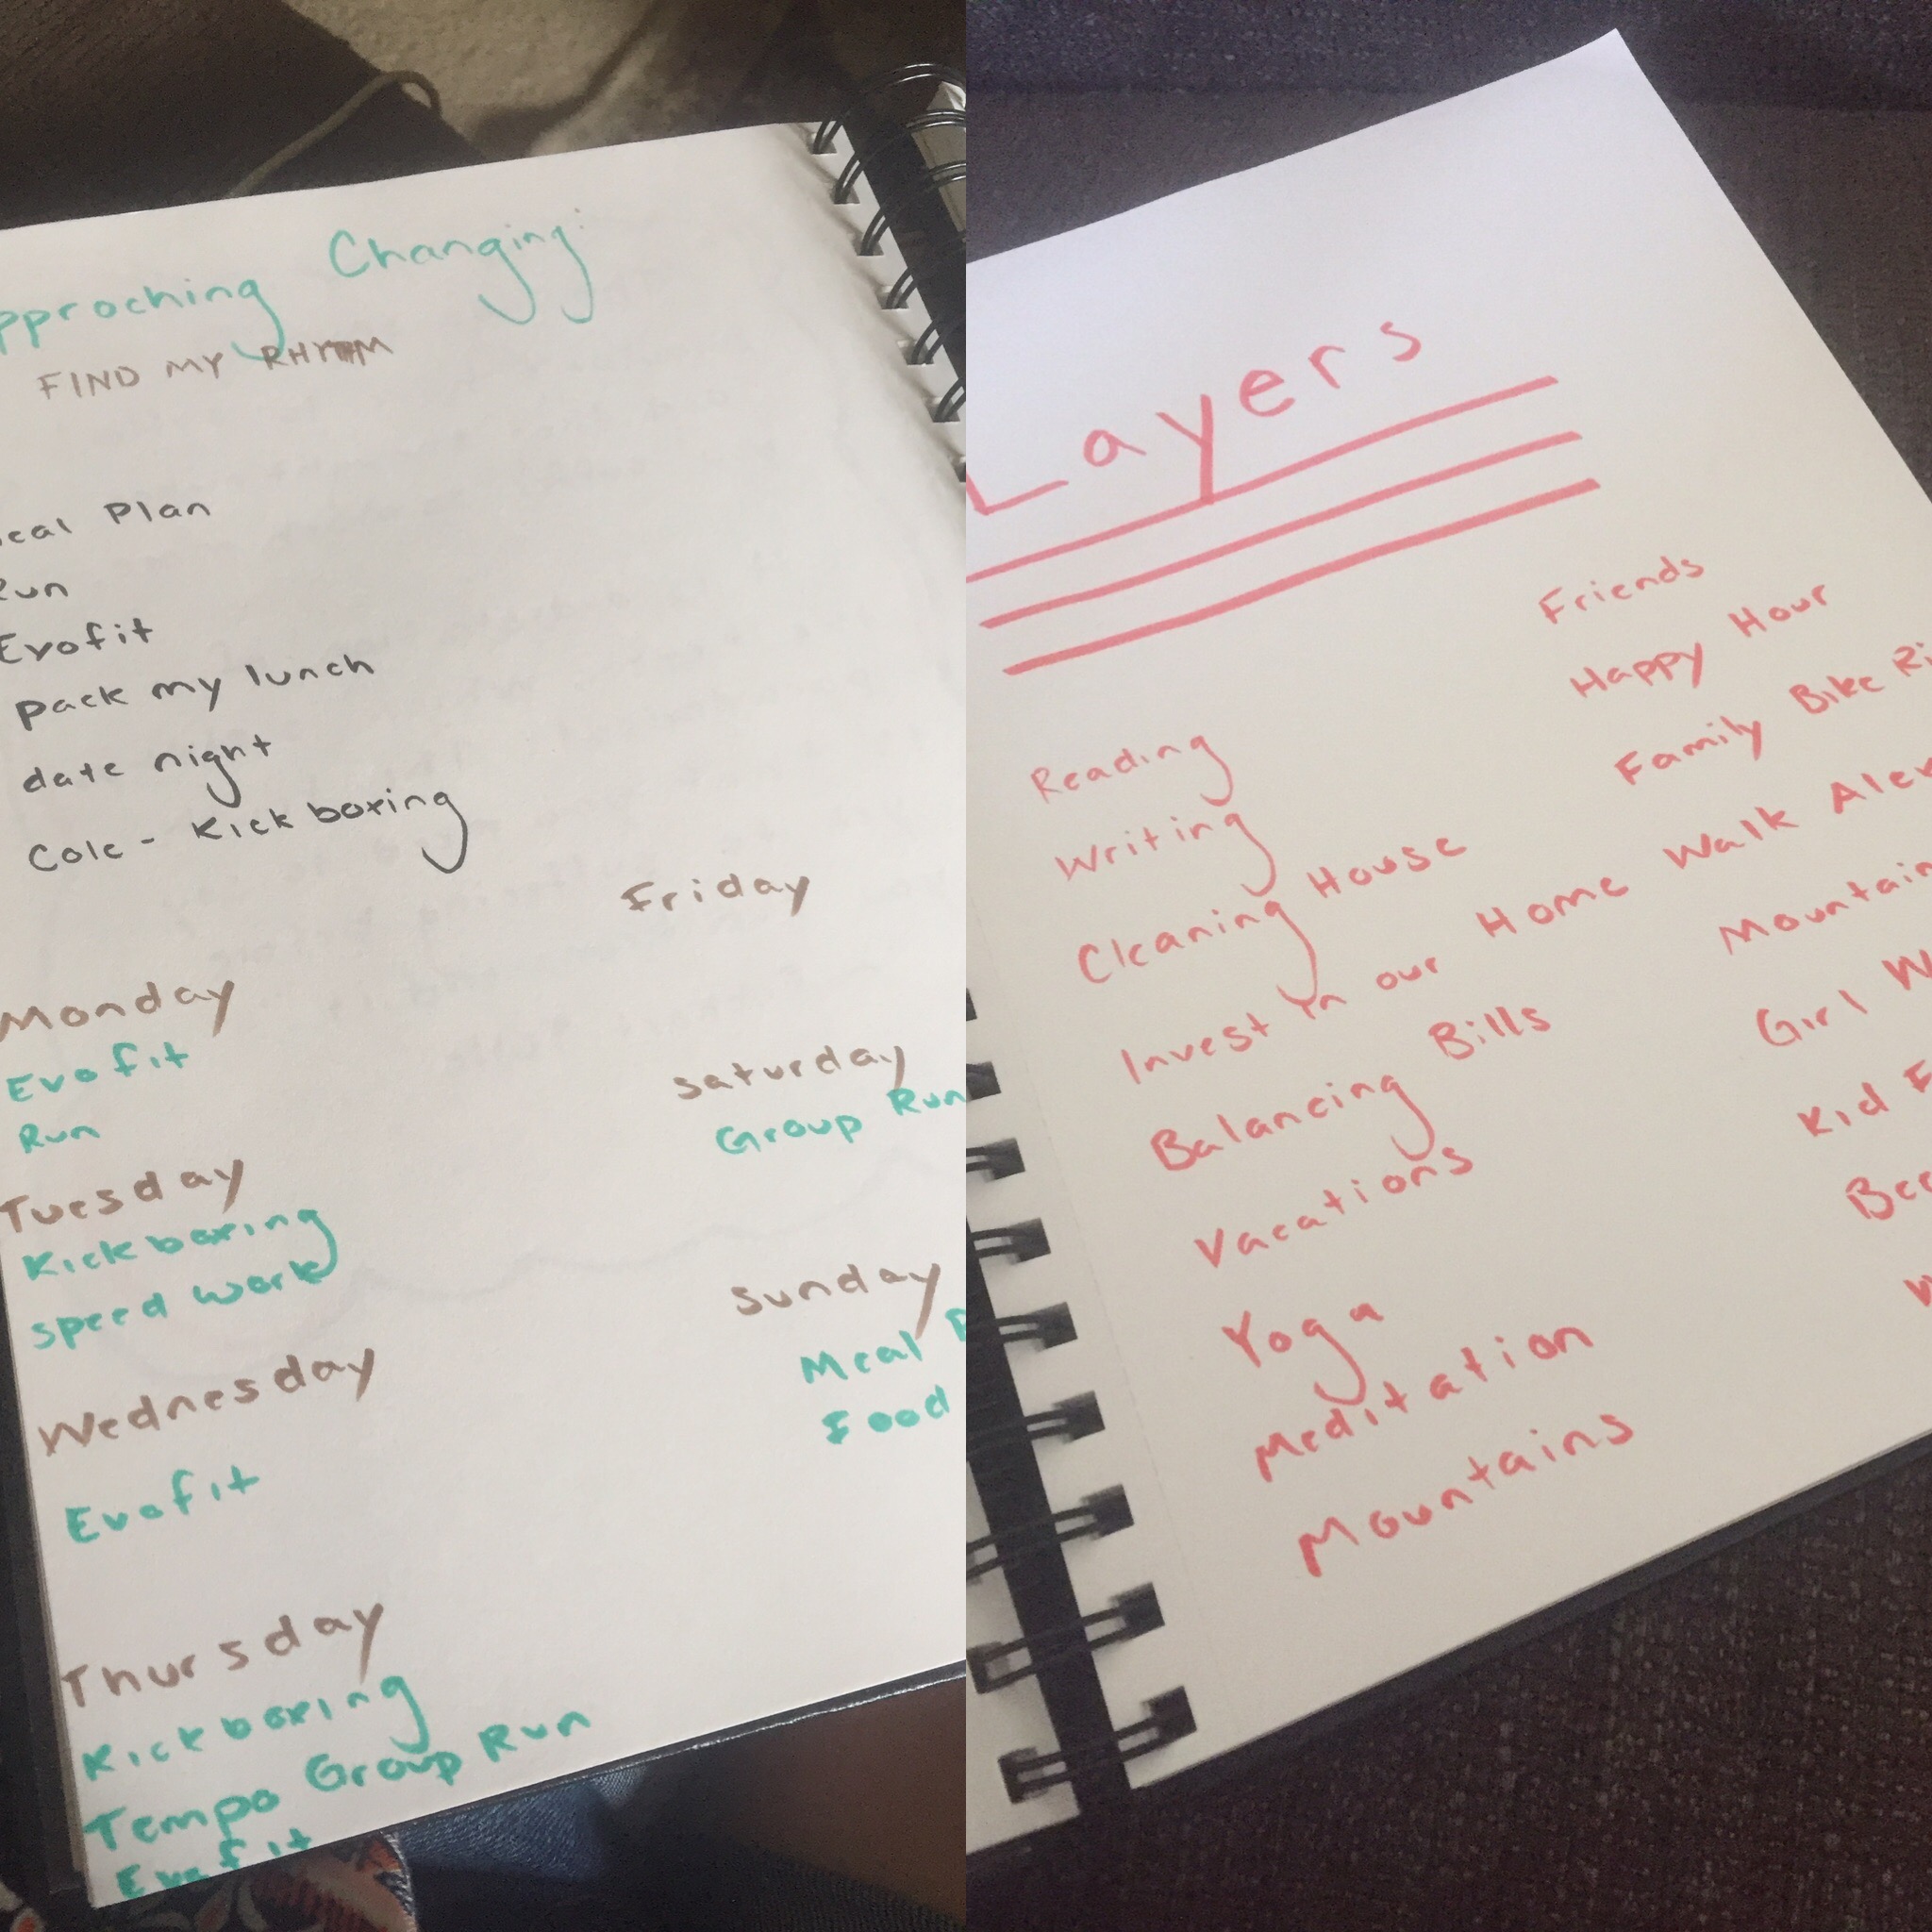 pproching Changing:
FIND MY RHYTHM
eal Plan
Run
Evofit
Pack my lunch
date night
Cole - Kick boxing
Monday
Evofit
Run
Tuesday
Kickboxing
speed work
Wednesday
Evofit
Thursday
Kickboxing
Tempo Group Run
Evofit
Friday
Saturday
Group Run
Sunday
Meal
Food
Layers
Reading
Writing
Cleaning House
Invest in our Home
Balancing Bills
Vacations
Yoga
Meditation
Mountains
Friends
Happy Hour
Family Bike Ri
Walk Alex
Mountain
Girl W
Kid